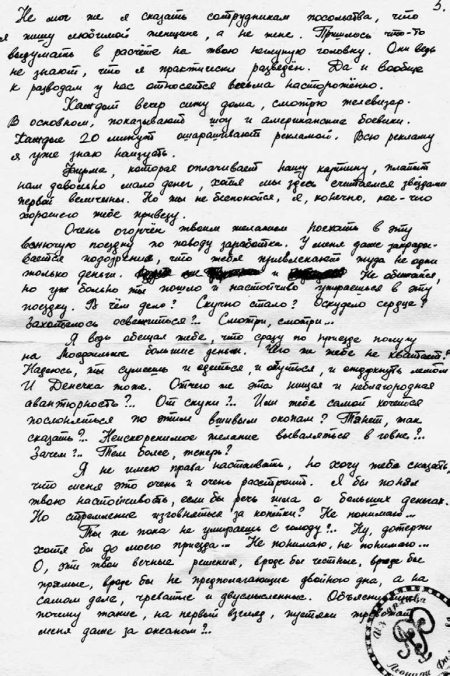 5.
Не мог же я сказать сотрудникам посольства, что
я пишу любимой женщине, а не жене. Пришлось что-то
выдумать в расчёте на твою неглупую головку. Они ведь
не знают, что я практически разведён. Да и вообще
к разводам у нас относятся весьма насторожённо.
Каждый вечер сижу дома, смотрю телевизор.
В основном, показывают шоу и американские боевики.
Каждые 20 минут ошарашивают рекламой. Всю рекламу
я уже знаю наизусть.
Фирма, которая оплачивает нашу картину, платит
нам довольно мало денег, хотя мы здесь считаемся звёздами
первой величины. Но ты не беспокойся, я, конечно, кое-чего
хорошего тебе привезу.
Очень огорчён твоим желанием поехать в эту
вонючую поездку по поводу заработка. У меня даже закрады-
вается подозрение, что тебя привлекают туда не одни
только деньги. и Не обижайся,
но уж больно ты пошло и настойчиво упираешься в эту
поездку. В чём дело? Скучно стало? Оскудело сердце?
Захотелось освежиться?.. Смотри, смотри...
Я ведь обещал тебе, что сразу по приезде получу
на большие деньги. Чего же тебе не хватает?
Надеюсь, ты сумеешь и одеться, и обуться, и отдохнуть летом
И Денечка тоже. Отчего же эта нищая и неблагородная
авантюрность?.. От скуки?.. Или тебе самой хочется
послоняться по этим вшивым окопам? Тянет, так
сказать?.. Неискоренимое желание вываляться в говне?..
Зачем?.. Тем более, теперь?
Я не имею права настаивать, но хочу тебе сказать,
что меня это очень и очень расстроит. Я бы понял
твою настойчивость, если бы речь шла о больших деньгах.
Но стремление изгов няться за копейки? Не понимаю...
Ты же пока не умираешь с голоду?.. Ну, дотерпи
хотя бы до моего приезда... Не понимаю, не понимаю...
О, эти твои вечные решения, вроде бы честные, вроде бы
прямые, вроде бы не предполагающие двойного дна, а на
самом деле, чреватые и двусмысленные. Объясни
почему такие, на первый взгляд, пустяки тревожат
меня даже за океаном?..